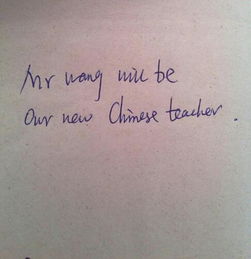 Mr wang will be
Our new Chinese teacher.